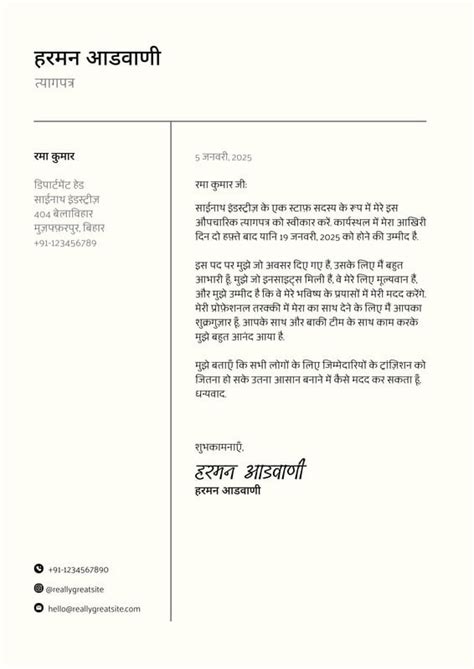 हरमन आडवाणी
त्यागपत्र
रमा कुमार
डिपार्टमेंट हेड
साईनाथ इंडस्ट्रीज़
404 बेलाविहार
मुज़फ़्फ़रपुर, बिहार
+91-123456789
5 जनवरी, 2025
रमा कुमार जी:
साईनाथ इंडस्ट्रीज़ के एक स्टाफ़ सदस्य के रूप में मेरे इस
औपचारिक त्यागपत्र को स्वीकार करें. कार्यस्थल में मेरा आखिरी
दिन दो हफ़्ते बाद यानि 19 जनवरी, 2025 को होने की उम्मीद है.
इस पद पर मुझे जो अवसर दिए गए हैं, उसके लिए मैं बहुत
आभारी हूँ. मुझे जो इनसाइट्स मिली हैं, वे मेरे लिए मूल्यवान हैं,
और मुझे उम्मीद है कि वे मेरे भविष्य के प्रयासों में मेरी मदद करेंगे.
मेरी प्रोफ़ेशनल तरक्की में मेरा का साथ देने के लिए मैं आपका
शुक्रगुज़ार हूँ. आपके साथ और बाकी टीम के साथ काम करके
मुझे बहुत आनंद आया है.
मुझे बताएँ कि सभी लोगों के लिए जिम्मेदारियों के ट्रांज़िशन को
जितना हो सके उतना आसान बनाने में कैसे मदद कर सकता हूँ.
धन्यवाद.
शुभकामनाएँ,
हरमन आडवाणी
हरमन आडवाणी
+91-1234567890
@reallygreatsite
hello@reallygreatsite.com